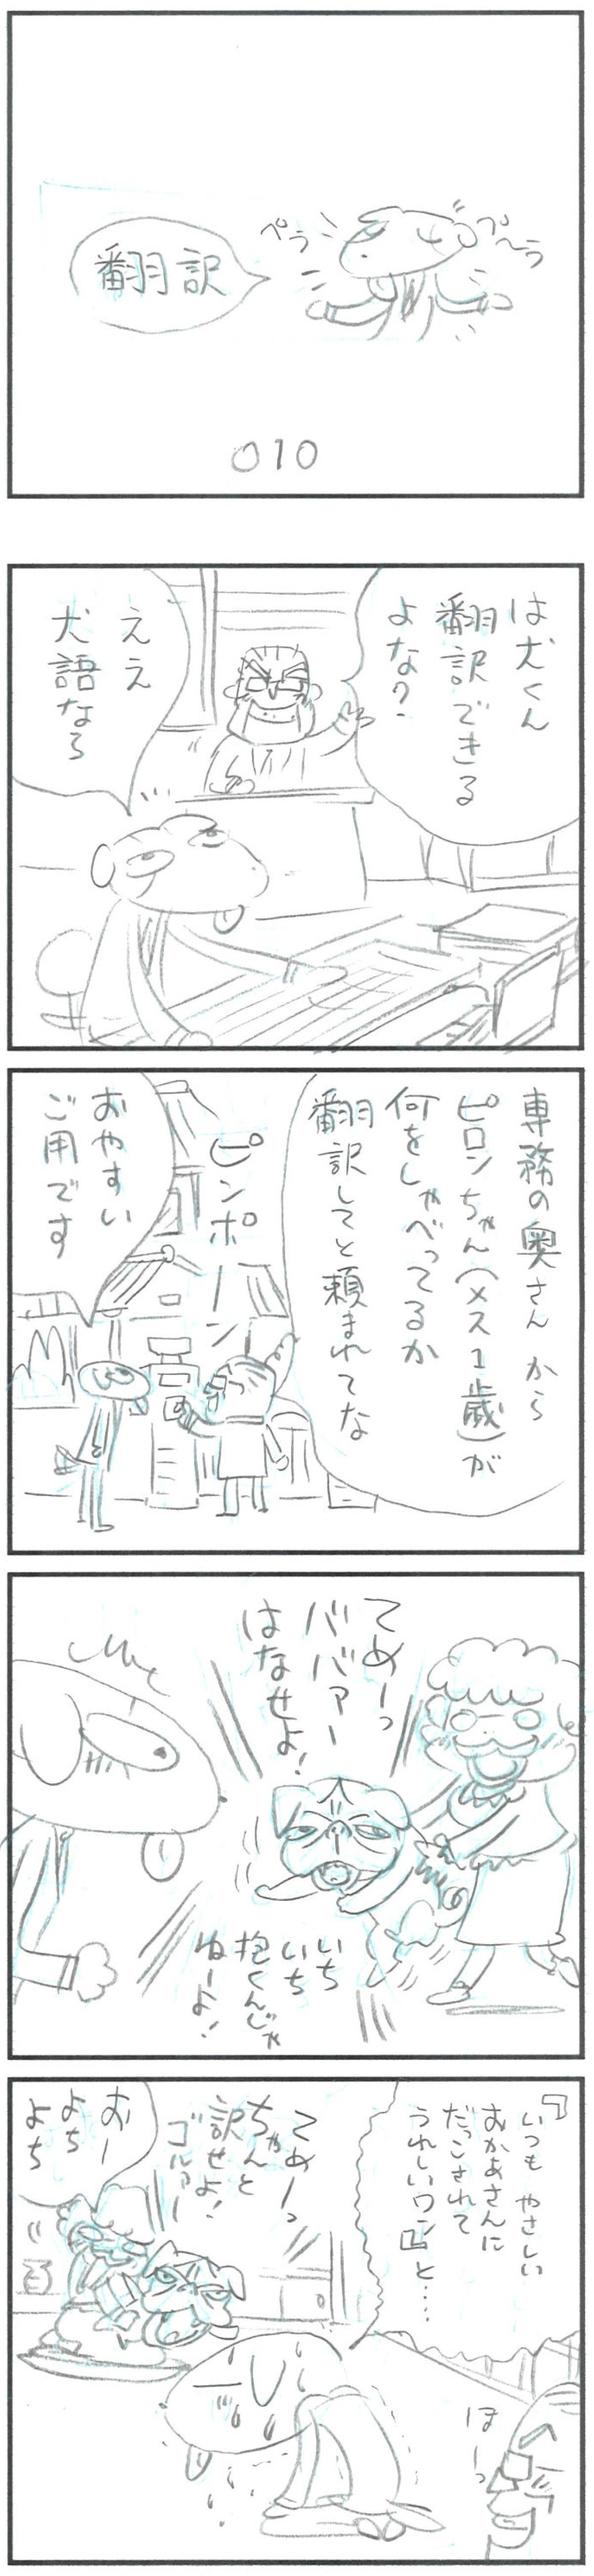 翻訳
ペラ
プ〜ラ
010
は犬くん
翻訳できる
よな?
ええ
犬語なら
専務の奥さんから
ピロンちゃん(メス1歳)が
何をしゃべってるか
翻訳してと頼まれてな
ピンポーン
おやすい
ご用です
てめーっ
ババァー
はなせよ!
いち
いち
抱くんじゃ
ねーよ!
『いつもやさしい
おかあさんに
だっこされて
うれしいワン』と…
ほーっ
てめーっ
ちゃんと
訳せよ!
ゴルァー
おー
よち
よち